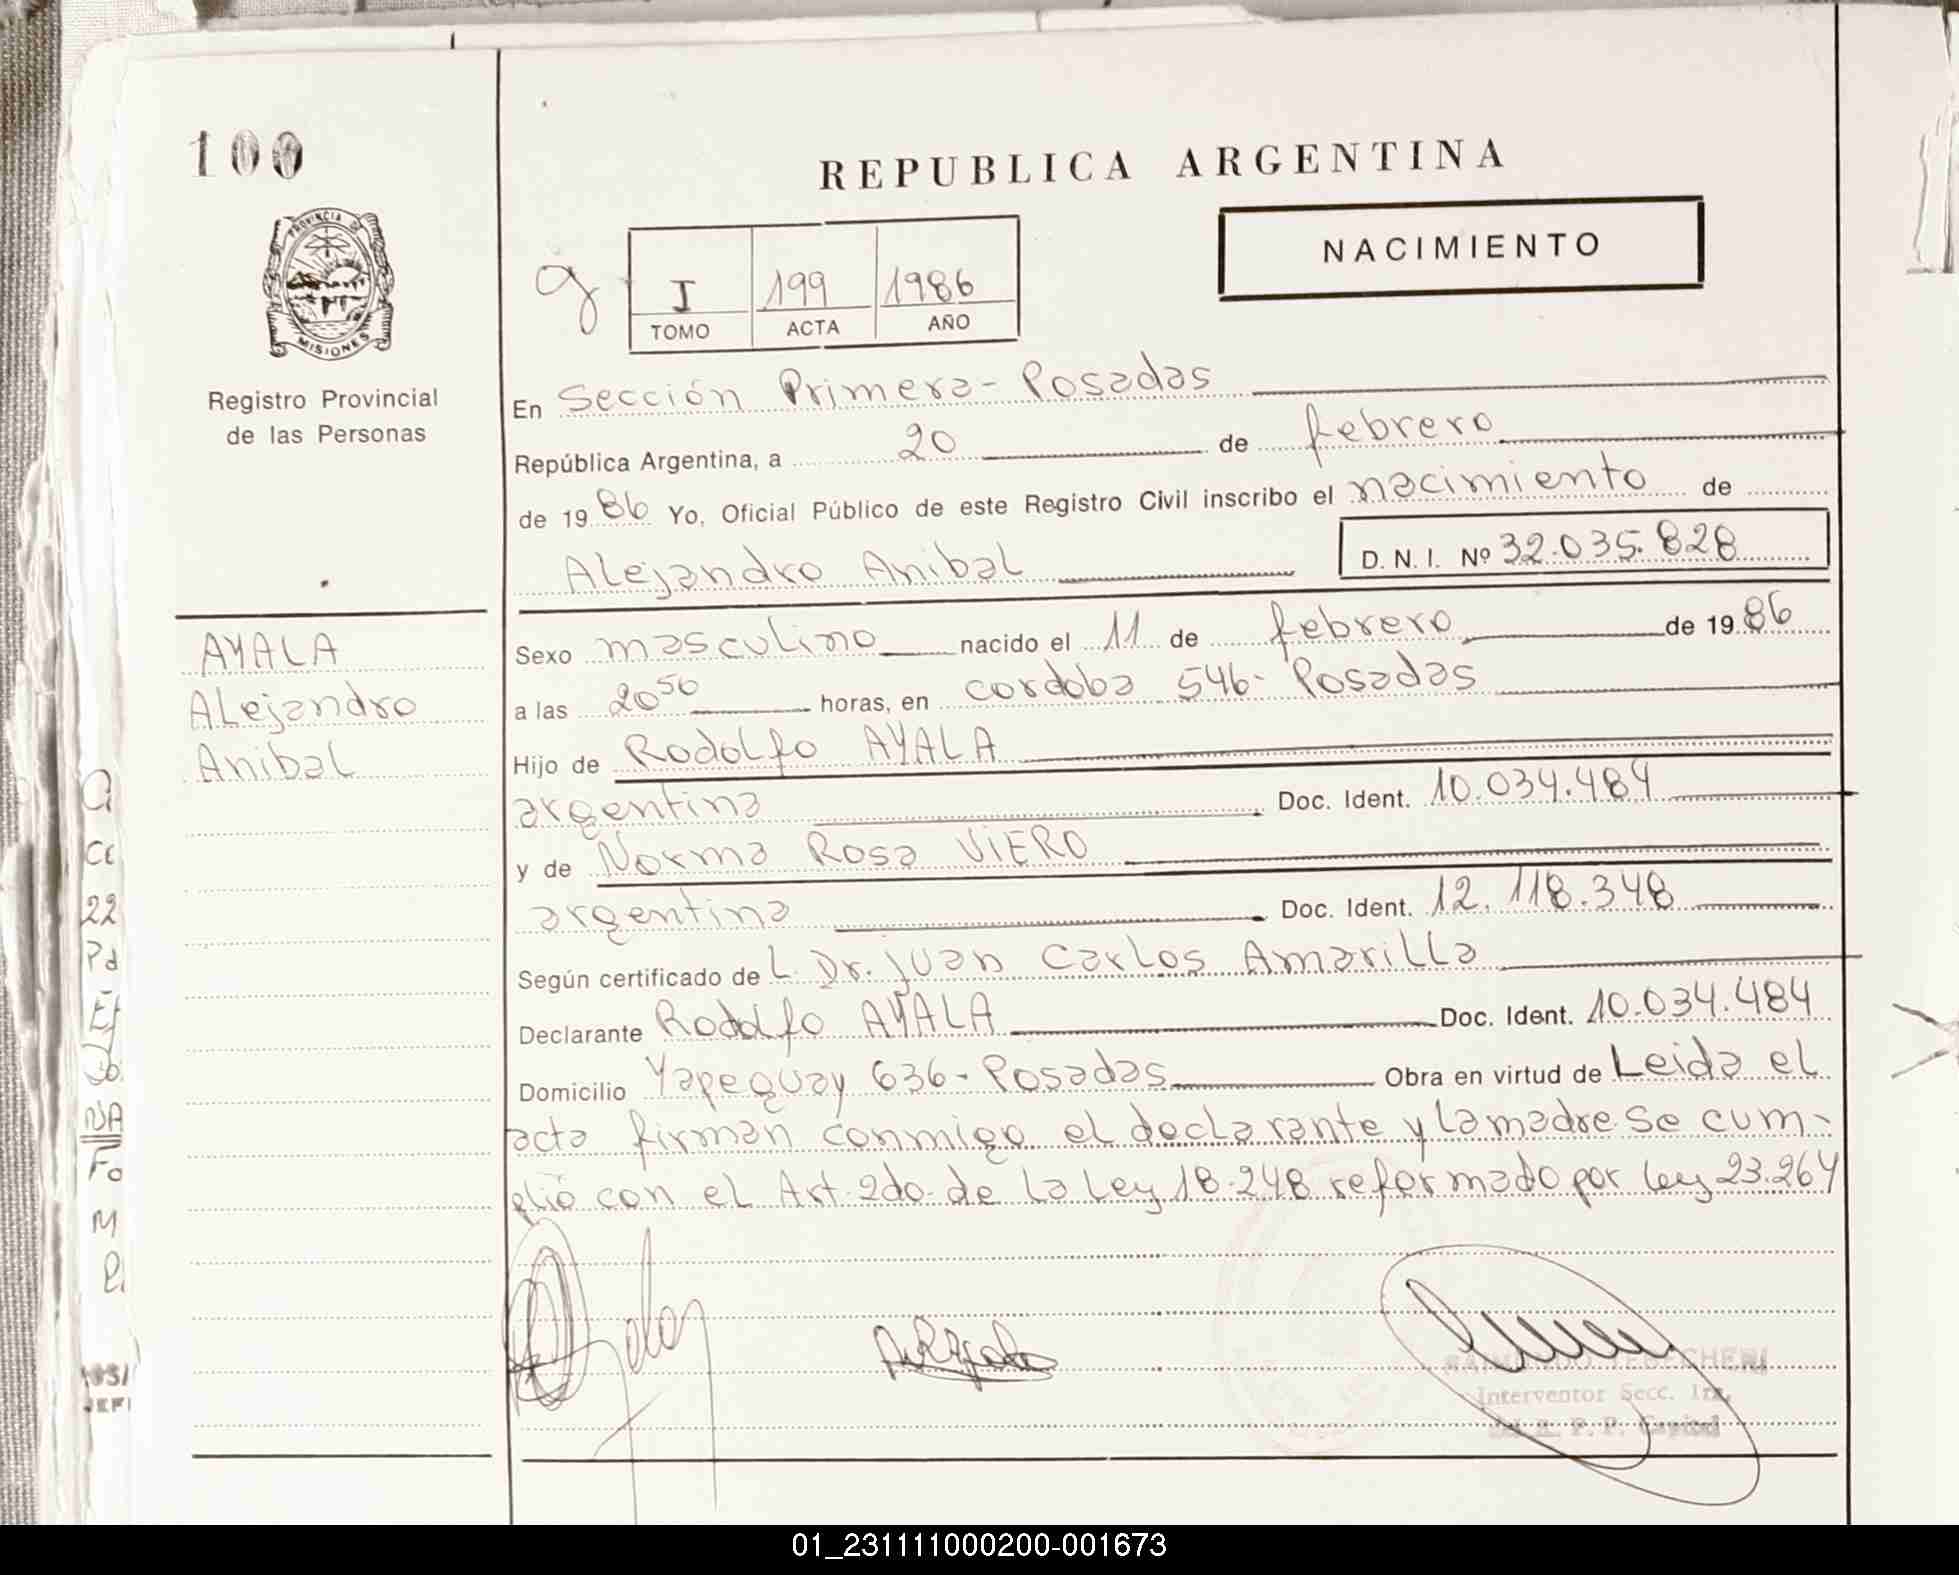 100
REPUBLICA ARGENTINA
PROVINCIA DE
MISIONES
NACIMIENTO
I 199 1986
TOMO ACTA AÑO
Registro Provincial
de las Personas
En Sección Primera - Posadas
República Argentina, a 20 de febrero
de 1986 Yo, Oficial Público de este Registro Civil inscribo el nacimiento de
Alejandro Anibal D. N. I. Nº 32.035.828
AYALA
Alejandro
Anibal
Sexo masculino nacido el 11 de febrero de 1986
a las 20 50 horas, en cordoba 546 - Posadas
Hijo de Rodolfo AYALA
argentina Doc. Ident. 10.034.484
y de Norma Rosa VIERO
argentina Doc. Ident. 12.118.348
Según certificado de L. Dr. Juan Carlos Amarilla
Declarante Rodolfo AYALA Doc. Ident. 10.034.484
Domicilio Yapeguay 636 - Posadas Obra en virtud de Leida el
acta firman conmigo el declarante y la madre se cum-
plió con el Art. 2do de la Ley 18.248 reformado por ley 23.264
Interventor Secc. 1ra.
R. P. P. Capital
01_231111000200-001673